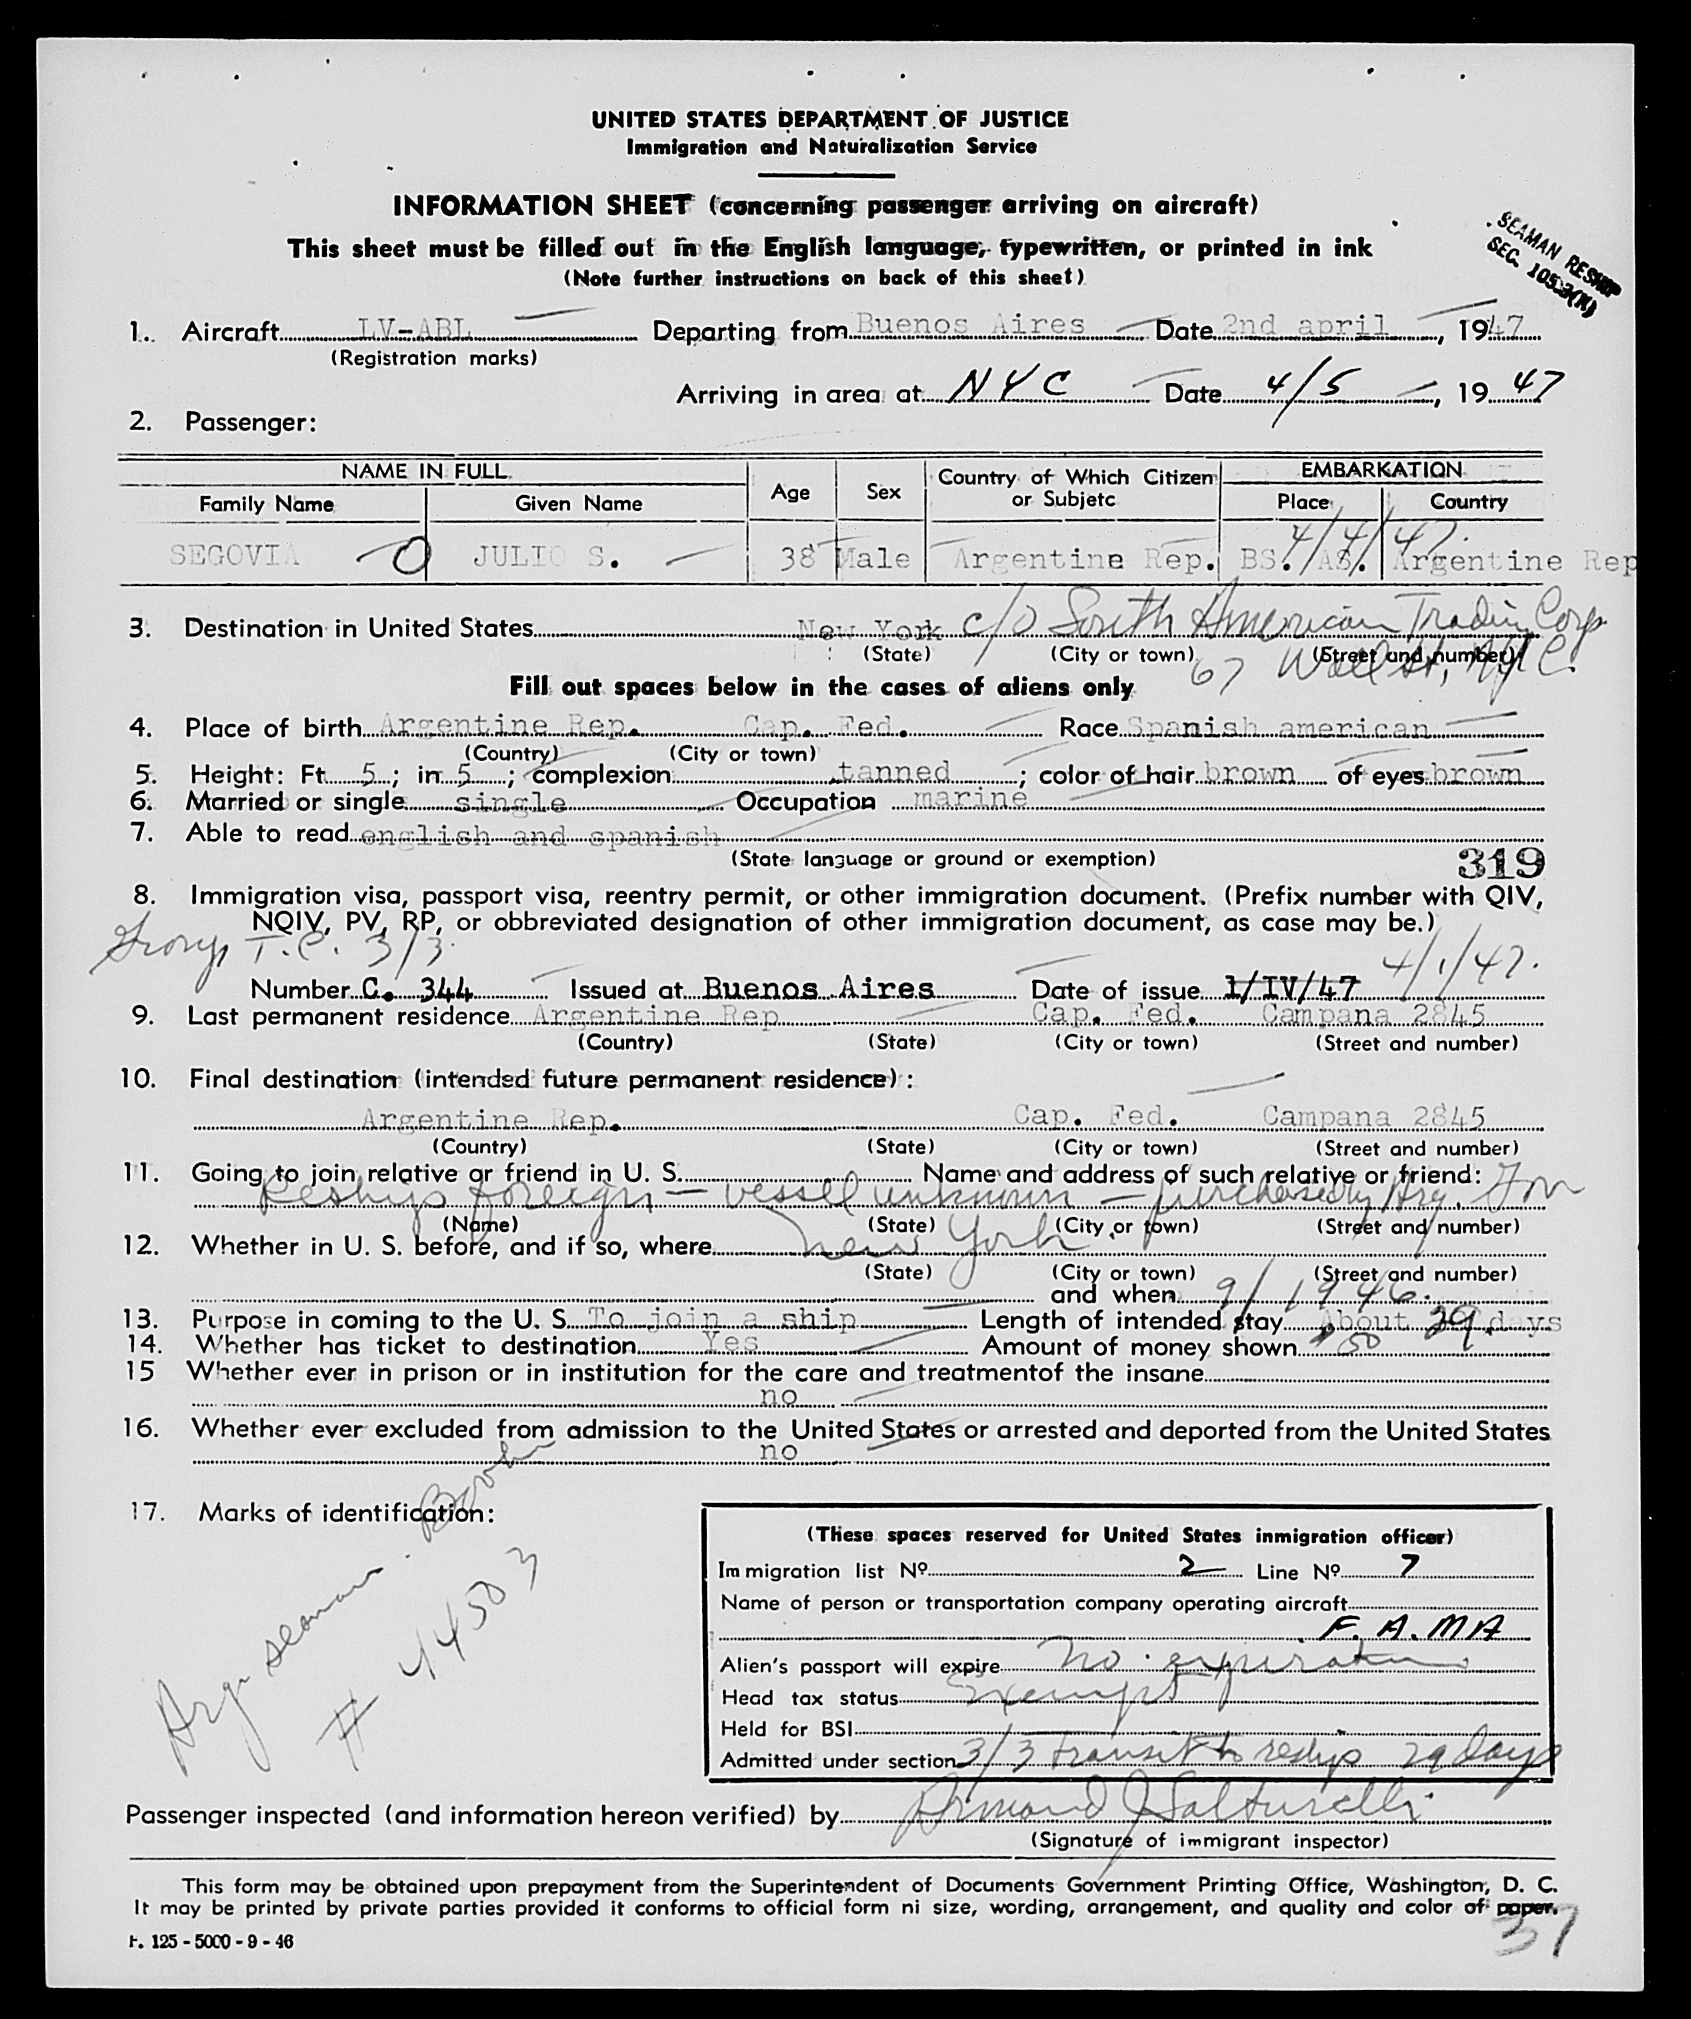 UNITED STATES DEPARTMENT OF JUSTICE
Immigration and Naturalization Service
INFORMATION SHEET (concerning passenger arriving on aircraft)
This sheet must be filled out in the English language, typewritten, or printed in ink
(Note further instructions on back of this sheet)
SEAMAN RESHIP
SEC. 105.3(N)
1. Aircraft LV-ABL Departing from Buenos Aires Date 2nd april, 1947
(Registration marks)
Arriving in area at NYC Date 4/5, 1947
2. Passenger:
NAME IN FULL Age Sex Country of Which Citizen or Subjetc EMBARKATION
Family Name Given Name Place Country
4/4/47.
SEGOVIA O JULIO S. 38 Male Argentine Rep. BS. AS. Argentine Rep
3. Destination in United States New York c/o South American Trading Corp
(State) (City or town) (Street and number)
67 Wall St, NYC.
Fill out spaces below in the cases of aliens only
4. Place of birth Argentine Rep. Cap. Fed. Race Spanish american
(Country) (City or town)
5. Height: Ft. 5; in 5; complexion tanned; color of hair brown of eyes brown
6. Married or single single Occupation marine
7. Able to read english and spanish
(State language or ground or exemption)
319
8. Immigration visa, passport visa, reentry permit, or other immigration document. (Prefix number with QIV,
NQIV, PV, RP, or obbreviated designation of other immigration document, as case may be.)
T.C. 3/3. 4/1/47.
Number C. 344 Issued at Buenos Aires Date of issue 1/IV/47
9. Last permanent residence Argentine Rep Cap. Fed. Campana 2845
(Country) (State) (City or town) (Street and number)
10. Final destination (intended future permanent residence):
Argentine Rep. Cap. Fed. Campana 2845
(Country) (State) (City or town) (Street and number)
11. Going to join relative or friend in U. S. Name and address of such relative or friend:
Reships foreign - vessel unknown - purchased by Arg.
(Name) (State) (City or town) (Street and number)
12. Whether in U. S. before, and if so, where New York
(State) (City or town) (Street and number)
and when 9/1946.
13. Purpose in coming to the U. S. To join a ship Length of intended stay About 29 days
14. Whether has ticket to destination Yes Amount of money shown $50
15 Whether ever in prison or in institution for the care and treatmentof the insane
no
16. Whether ever excluded from admission to the United States or arrested and deported from the United States
no
17. Marks of identification:
Arg. seaman Book
# 44503
(These spaces reserved for United States inmigration officer)
Immigration list Nº 2 Line Nº 7
Name of person or transportation company operating aircraft
F. A. M A
Alien's passport will expire no expiration
Head tax status Exempt
Held for BSI
Admitted under section 3/3 transit to reship 29 days
Passenger inspected (and information hereon verified) by Armand J Salturelli
(Signature of immigrant inspector)
This form may be obtained upon prepayment from the Superintendent of Documents Government Printing Office, Washington, D. C.
It may be printed by private parties provided it conforms to official form ni size, wording, arrangement, and quality and color of paper.
F. 125 - 5000 - 9 - 46
37